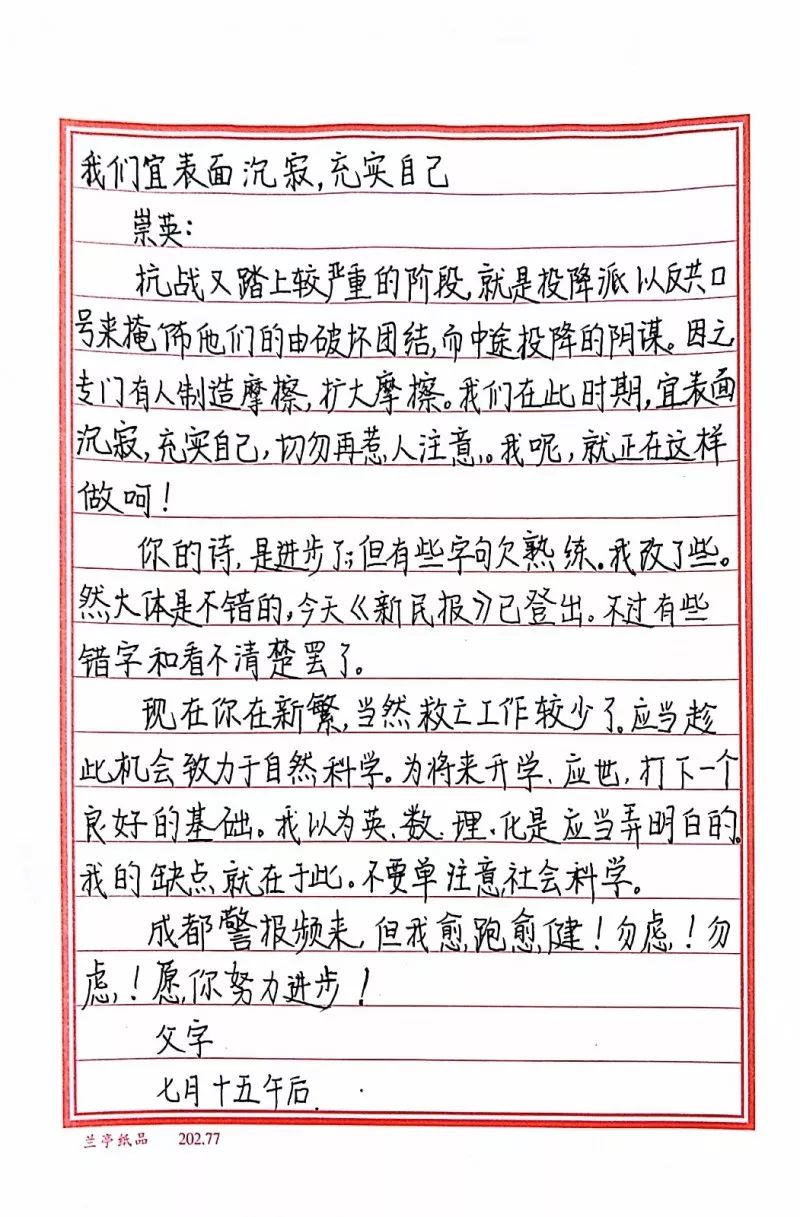 我们宜表面沉寂,充实自己
崇英:
抗战又踏上较严重的阶段,就是投降派以反共口
号来掩饰他们的由破坏团结,而中途投降的阴谋。因之
专门有人制造摩擦,扩大摩擦。我们在此时期,宜表面
沉寂,充实自己,切勿再惹人注意。我呢,就正在这样
做呵!
你的诗,是进步了;但有些字句欠熟练。我改了些。
然大体是不错的,今天《新民报》已登出。不过有些
错字和看不清楚罢了。
现在你在新繁,当然救亡工作较少了。应当趁
此机会致力于自然科学。为将来升学、应世,打下一个
良好的基础。我以为英、数、理、化是应当弄明白的。
我的缺点就在于此。不要单注意社会科学。
成都警报频来,但我愈跑愈健!勿虑!勿
虑!愿你努力进步!
父字
七月十五午后.
兰亭纸品 202.77